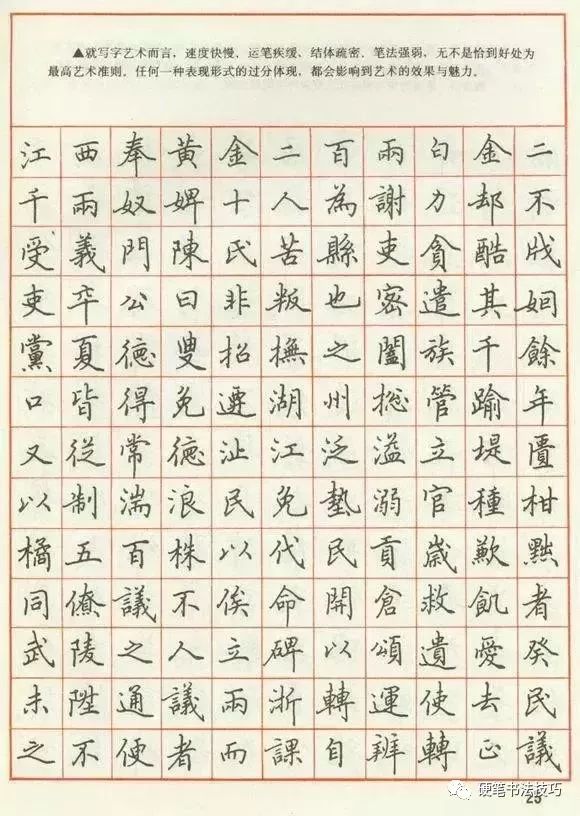 ▲就写字艺术而言，速度快慢，运笔疾缓、结体疏密，笔法强弱，无不是恰到好处为
最高艺术准则。任何一种表现形式的过分体现，都会影响到艺术的效果与魅力。
江西奉黄金二百兩白金二
千兩奴婢十人為謝力却不
受義門陳氏苦縣吏貪酷戕
吏卒公曰非叛也密遣其姻
黨夏德叟招撫之闔族千餘
口皆得免遷湖州摠管踰年
又從常德沚江泛溢立堤匱
以制湍浪民免墊溺官種柑
橘五百株以代民貢歲歉點
同僚議不俟命開倉救飢者
武陵之人立碑以頌遺愛癸
未陞通議兩浙轉運使去民
之不便者而課自辨轉正議
硬笔书法技巧
25